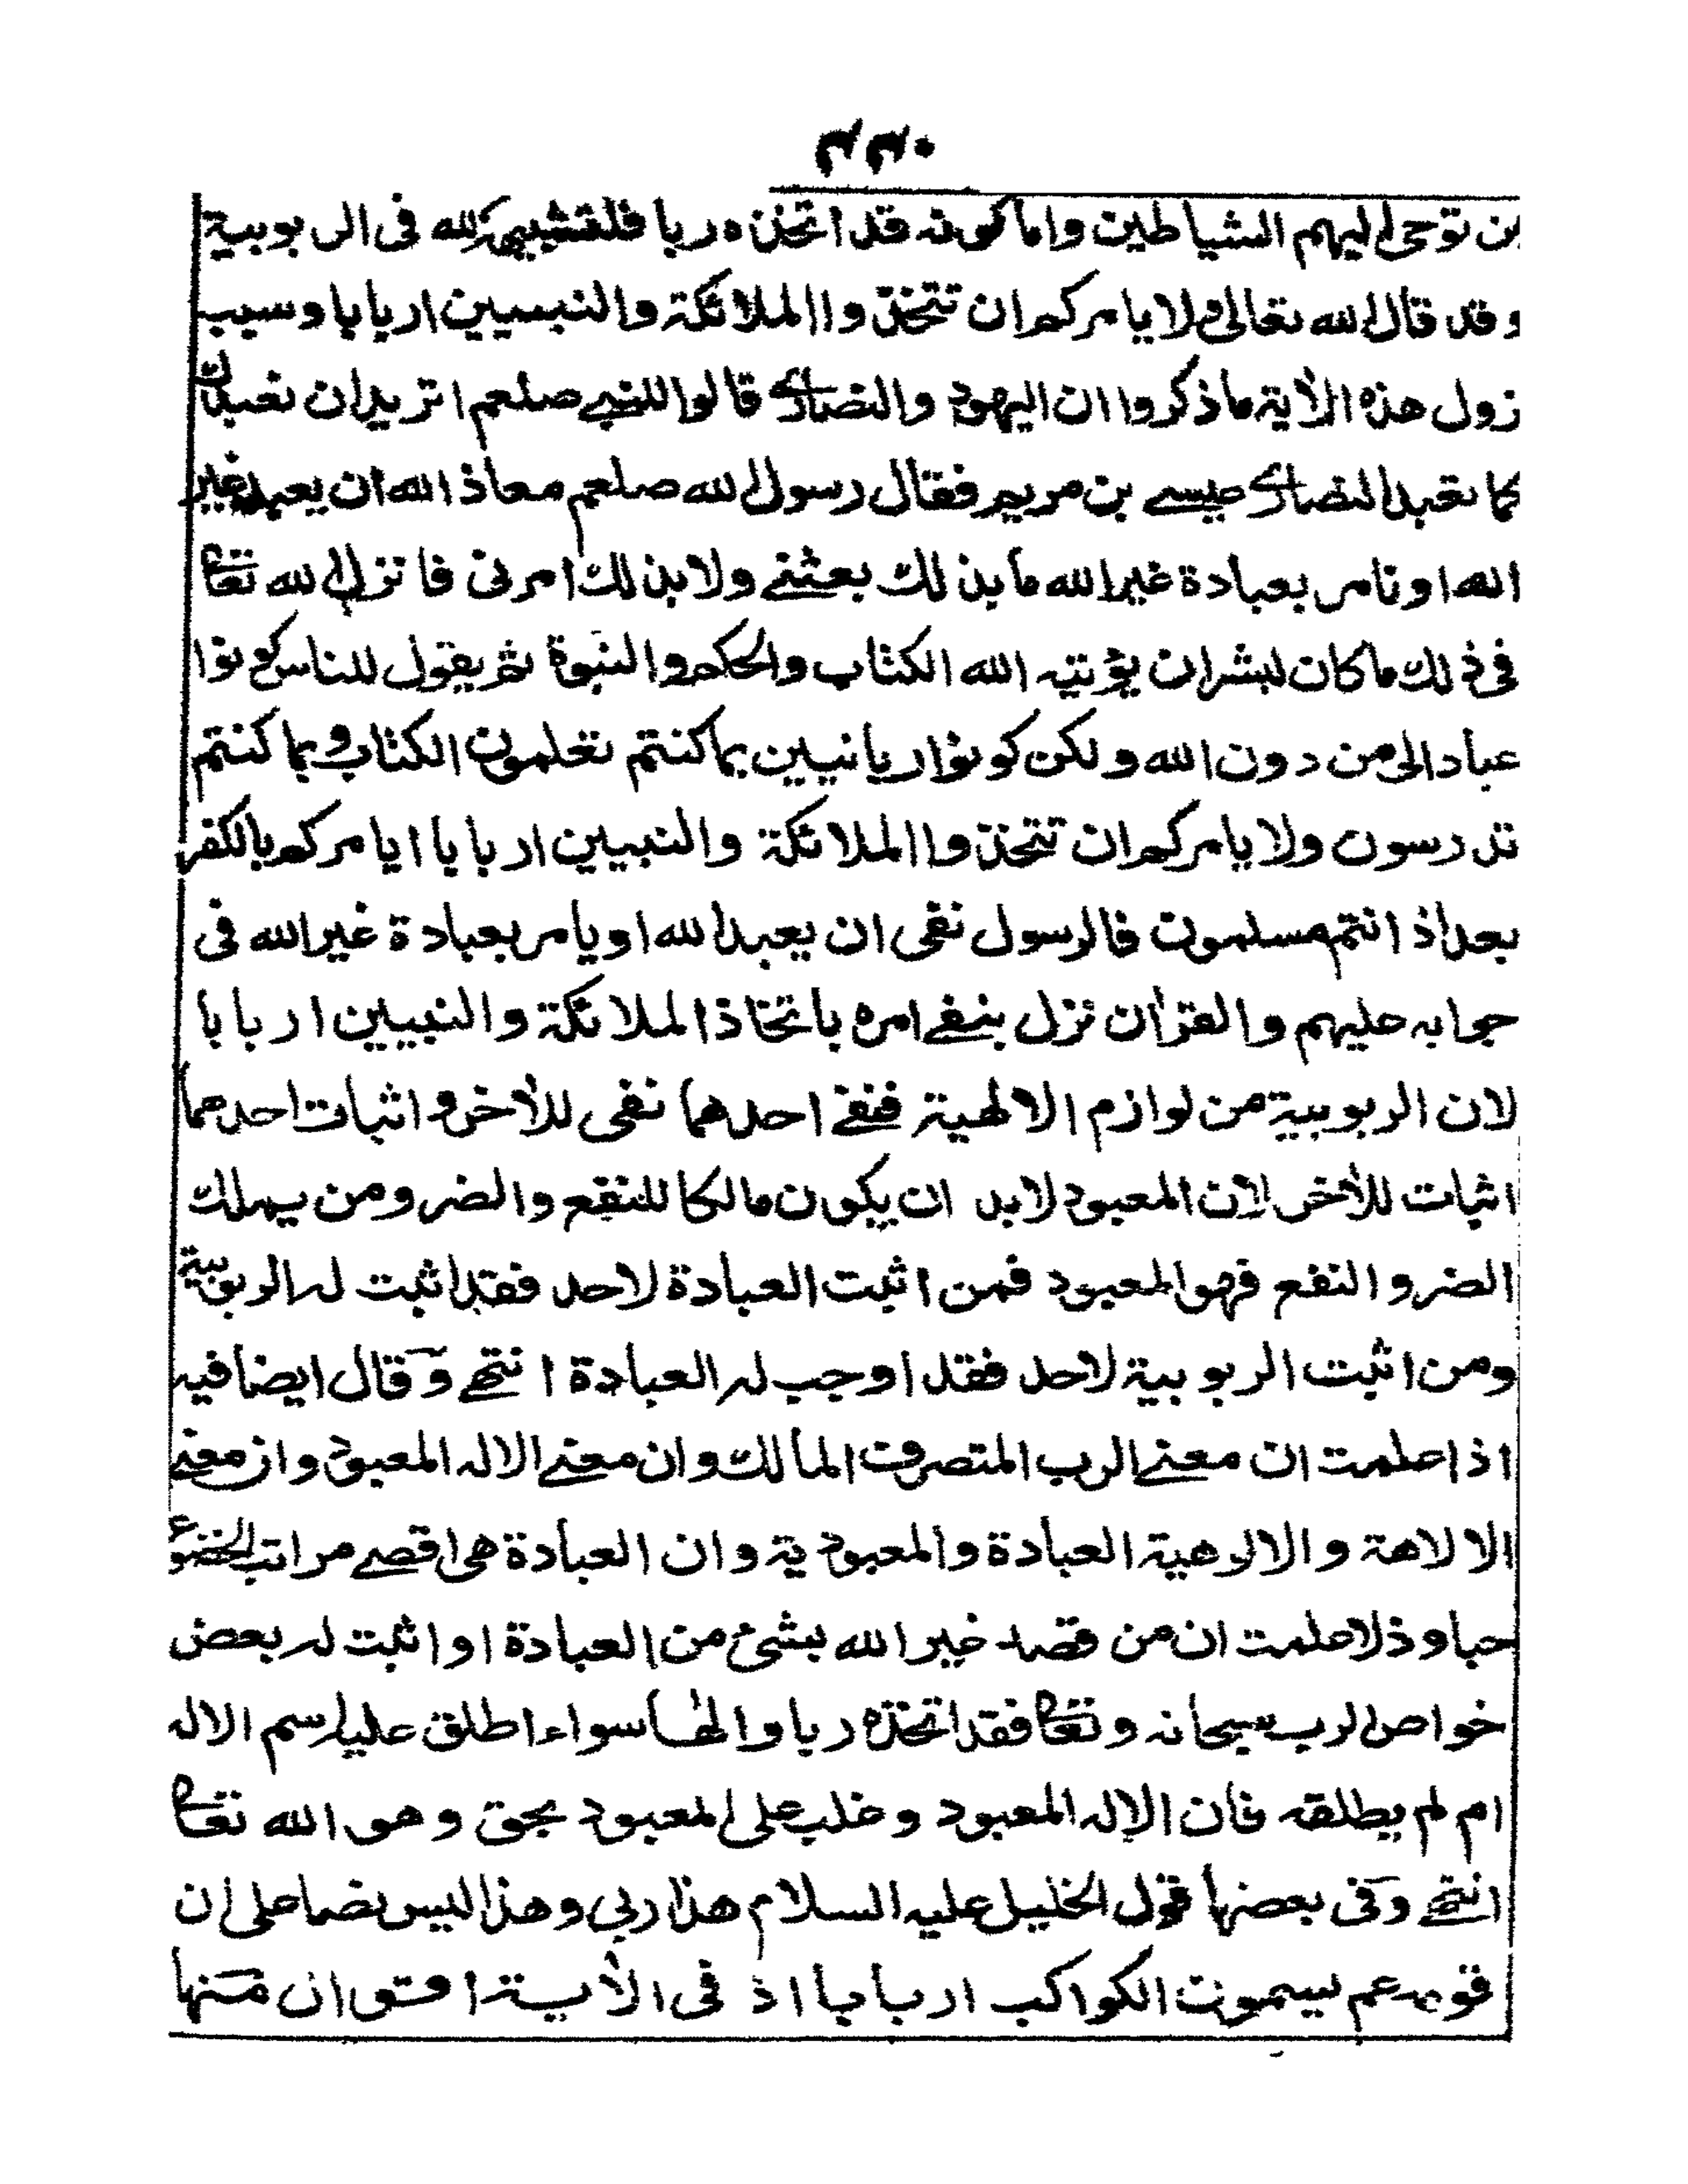 ٣٣٠
بن توحى اليهم الشياطين واما كونه قد اتخذه ربا فلتشبيهه لله فى الربوبية
وقد قال الله تعالى ولا يامركم ان تتخذوا الملائكة والنبيين اربابا وسبب
نزول هذه الأية ما ذكروا ان اليهود والنصارى قالوا للنبى صلعم اتريد ان نعبدك
كما تعبد النصارى عيسى بن مريم فقال رسول الله صلعم معاذ الله ان يعبد غير
الله او نامر بعبادة غير الله ما بذلك بعثنى ولا بذلك امرنى فانزل الله تعا
فى ذلك ما كان لبشر ان يؤتيه الله الكتاب والحكم والنبوة ثم يقول للناس كونوا
عبادا لى من دون الله ولكن كونوا ربانيين بما كنتم تعلمون الكتاب وبما كنتم
تدرسون ولا يامركم ان تتخذوا الملائكة والنبيين اربابا ايامركم بالكفر
بعد اذ انتم مسلمون فالرسول نفى ان يعبد الله او يامر بعبادة غير الله فى
جوابه عليهم والقرأن نزل بنفى امره باتخاذ الملائكة والنبيين اربابا
لان الربوبية من لوازم الالهية فنفى احدهما نفى للأخر واثبات احدهما
اثبات للأخر لان المعبود لابد ان يكون مالكا للنفع والضر ومن يملك
الضر والنفع فهو المعبود فمن اثبت العبادة لاحد فقد اثبت له الربوبية
ومن اثبت الربوبية لاحد فقد اوجب له العبادة انتهى وقال ايضا فيه
اذا علمت ان معنى الرب المتصرف المالك وان معنى الاله المعبود وان معنى
الالاهة والالوهية العبادة والمعبودية وان العبادة هى اقصى مراتب الخضوع
حبا وذلا علمت ان من قصد غير الله بشئ من العبادة او اثبت له بعض
خواص الرب سبحانه وتعا فقد اتخذه ربا والها سواء اطلق عليه اسم الاله
ام لم يطلقه فان الإله المعبود وغلب على المعبود بحق وهو الله تعا
انتهى وفى بعضها قول الخليل عليه السلام هذا ربي وهذا ليس نصا على ان
قومه عم يسمون الكواكب اربابا اذ فى الأية اقوال منها